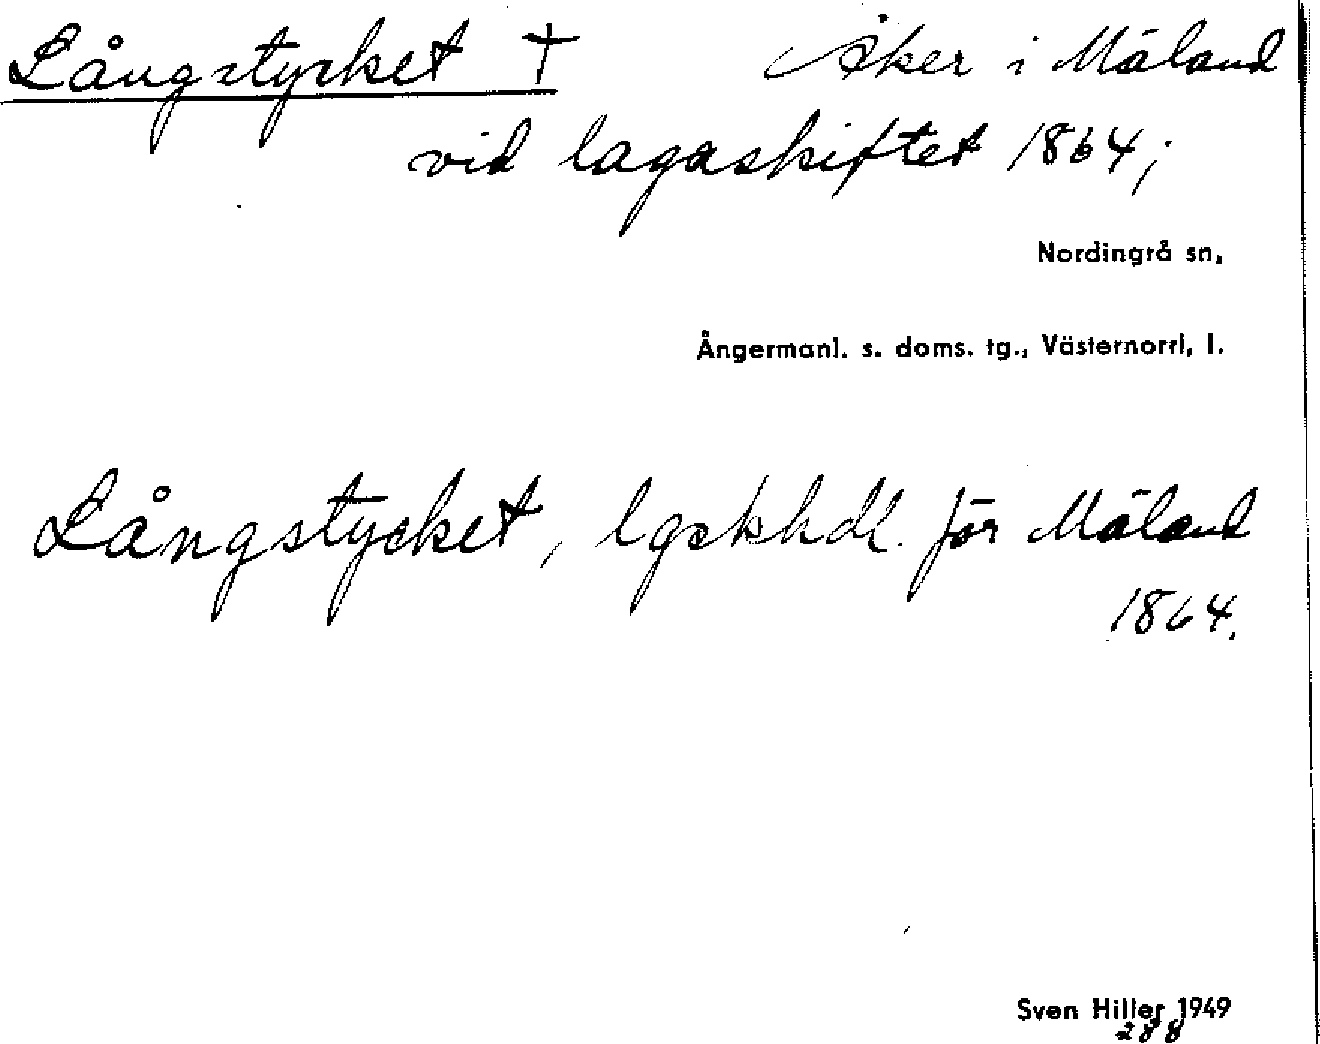 Långstycket † Åker i Mäland
vid lagaskiftet 1864;
Nordingrå sn,
Ångermanl. s. doms. tg., Västernorrl, l.
Långstycket, lgskhdl. för Mäland
1864.
Sven Hiller 1949
288